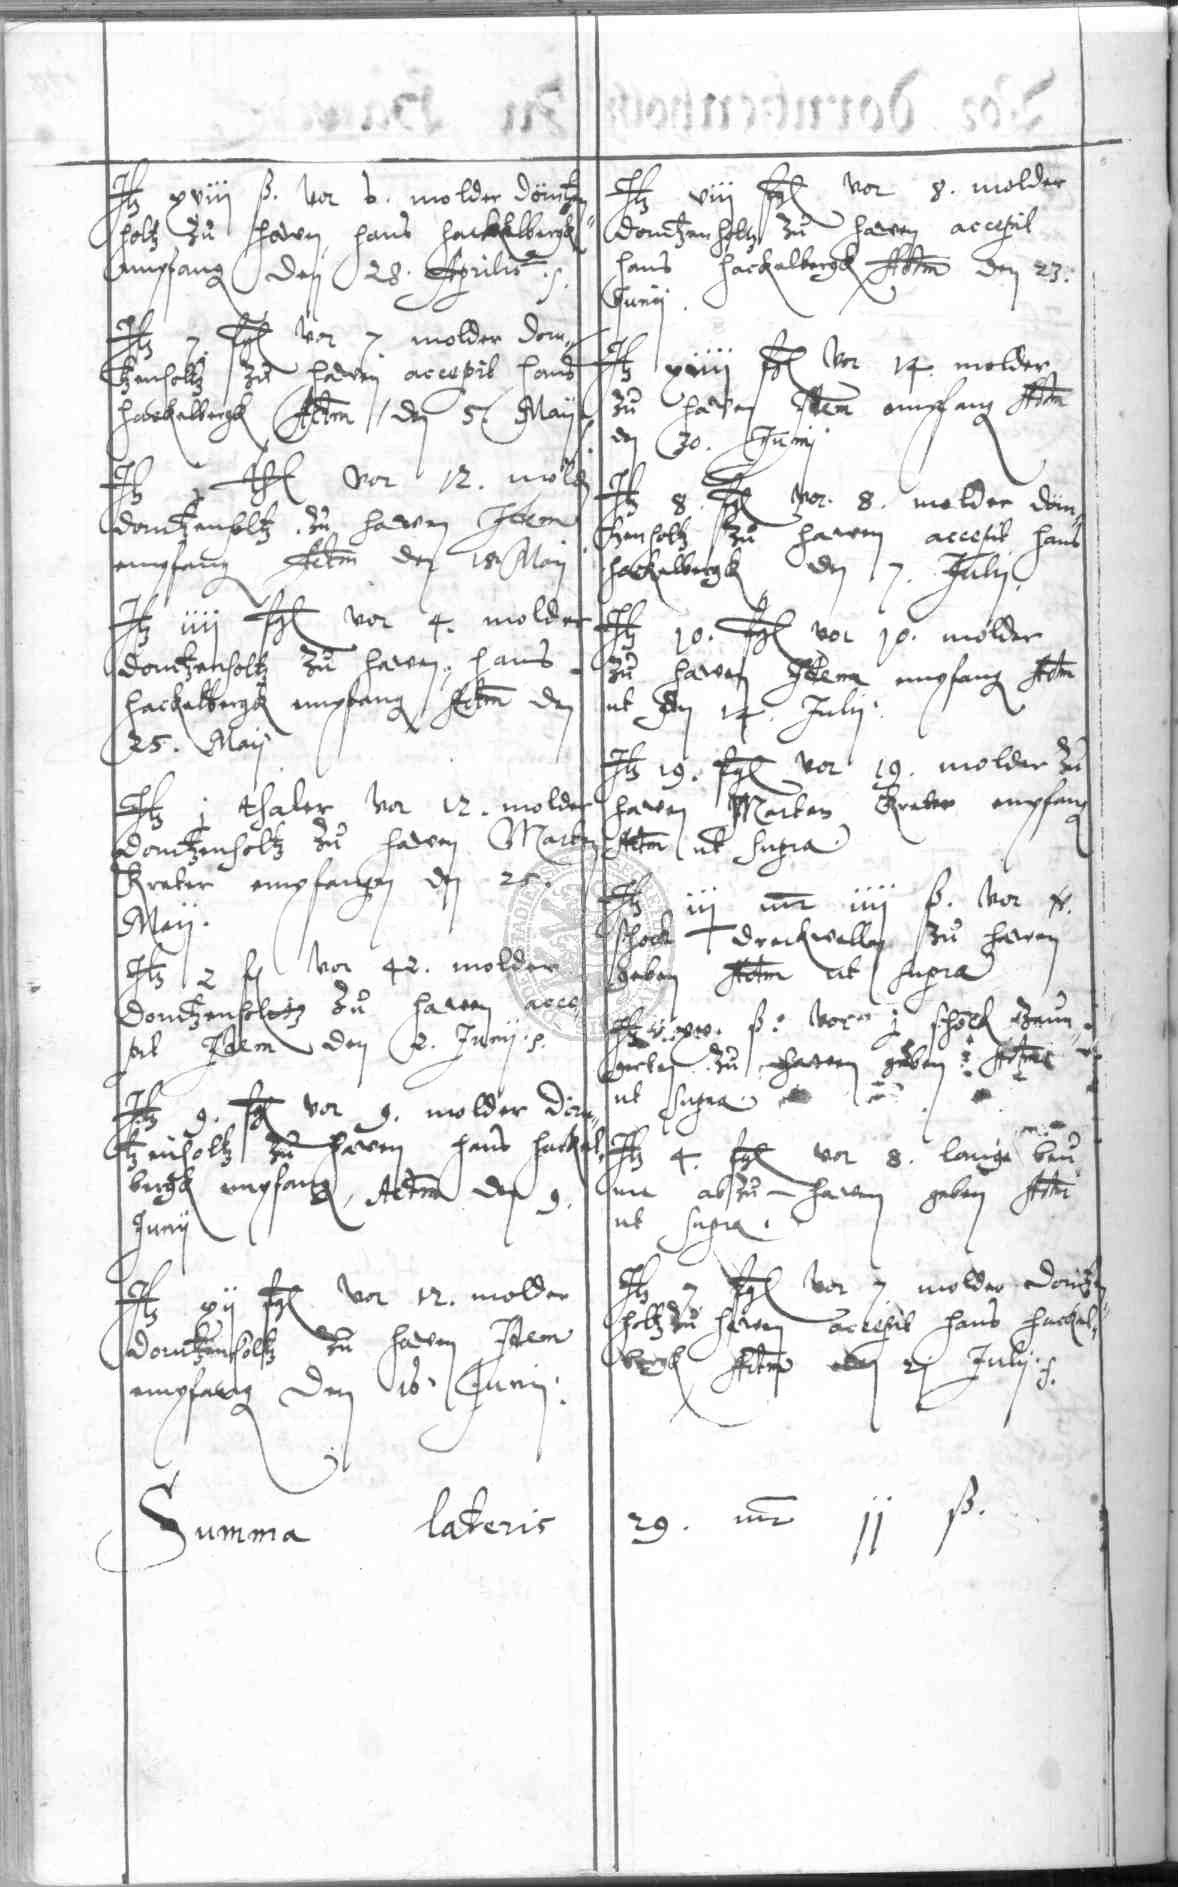 Itz xviii ß. vor 6. molder dörntzen
holtz zu hawen hans hackelbergk
empfang den 28. Aprilis.
Itz 7. fgl vor 7 molder dorn
tzenholtz zu hawen accepit hans
hackelbergk Actm den 5. Maij
Itz j fgl vor 12. mold
dorntzenholtz zu hawen Idem
empfang Actm den 18 Maij
Itz iiii fgl vor 4. molder
dorntzenholtz zu hawen hans
hackelbergk empfang Actm den
25. Maij
Itz j thaler vor 12. molder
dorntzenholtz zu hawen Marten
Kreter empfangen den 25.
Maij.
Itz 2 fl vor 42. molder
dorntzenholtz zu hawen acce
pit Idem den 2. Junij.
Itz 9. fgl vor 9. molder dorn
tzenholtz zu hawen hans hackel
bergk empfang Actm den 9.
Junij
Itz xii fgl vor 12. molder
dorntzenholtz zu hawen Idem
empfang den 16. Junij.
Itz viii fgl vor 8. molder
dorntzenholtz zu hawen accepit
hans hackelbergk Actm den 23.
Junij.
Itz xiiii fgl vor 14. molder
zu hawen Idem empfang Actm
den 30. Junij
Itz 8. fgl vor 8. molder dorn
tzenholtz zu hawen accepit hans
hackelbergk den 7. Julij.
Itz 10. fgl vor 10. molder
zu hawen Idem empfang Actm
ut den 14. Julij.
Itz 19. fgl vor 19. molder zu
hawen Marten Kreter empfang
Actm ut supra.
Itz iii mr iiii ß. vor
schock dreckwellen zu hawen
geben Actm ut supra
Itz ß. vor j schock zaun
gerten zu hawen geben Actm
ut supra.
Itz 4. fgl vor 8. lange beu
me abzu hawen geben Actm
ut supra.
Itz 7 fgl vor 7 molder dorntzen
holtz zu hawen accepit hans hackel
bergk Actm den 21 Julij.
Summa lateris 29. mr ij ß.